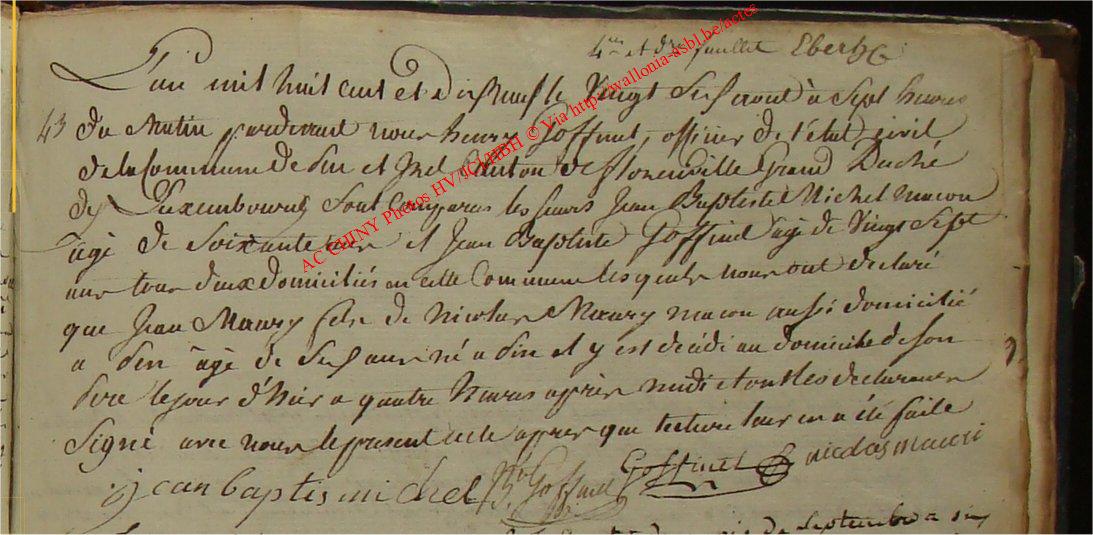 4me et dre juillet Eberh
L'an mil huit cent et dix Neuf le Vingt Six aout à Sept heures
43 du Matin pardevant nous henry Goffinet, officier de l'état civil
de la Commune de Pin et Izel Canton de florenville Grand Duché
de Luxembourg Sont Comparus les sieurs Jean Baptiste Michel macon
agé de Soixante ans et Jean Baptiste Goffinet agé de Vingt Sept
ans tous deux domiciliés en cette Commune lesquels nous ont declaré
que Jean Maury fils de Nicolas Maury macon aussi domicilié
a Pin agé de Six ans né a Pin et y est décédé au domicile de son
Pere le jour d'hier a quatre heures apprès midi et ont les declarans
Signé avec nous le present acte apprès que lecture leur en a été faite
jean baptis michel JB Goffinet Goffinet nicolas mauri
de Septembre a
AC CHINY Photos HV/JCl/HBH © Via http://wallonia-asbl.be/actes